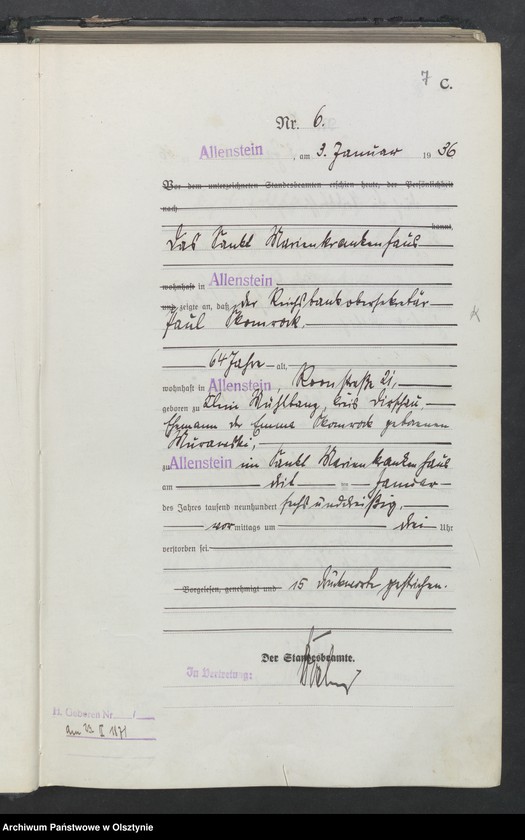 7 C.
Nr. 6.
Allenstein, am 3. Januar 1936
Vor dem unterzeichneten Standesbeamten erschien heute, der Persönlichkeit
nach
kannt,
Das Sankt Marienkrankenhaus
wohnhaft in Allenstein
und zeigte an, daß der Reichsbankobersekretär
Paul Skomrock,
64 Jahre alt,
wohnhaft in Allenstein, Roonstraße 21,
geboren zu Klein Mühlbanz, Kreis Dirschau,
Ehemann der Emma Skomrock geborenen
Murawski,
zu Allenstein im Sankt Marienkrankenhaus
am Januar
des Jahres tausend neunhundert sechsunddreißig,
vormittags um drei Uhr
verstorben sei.
Vorgelesen, genehmigt und 15 Druckworte gestrichen.
Der Standesbeamte.
In Vertretung:
Geboren Nr.
am 1871
Archiwum Państwowe w Olsztynie